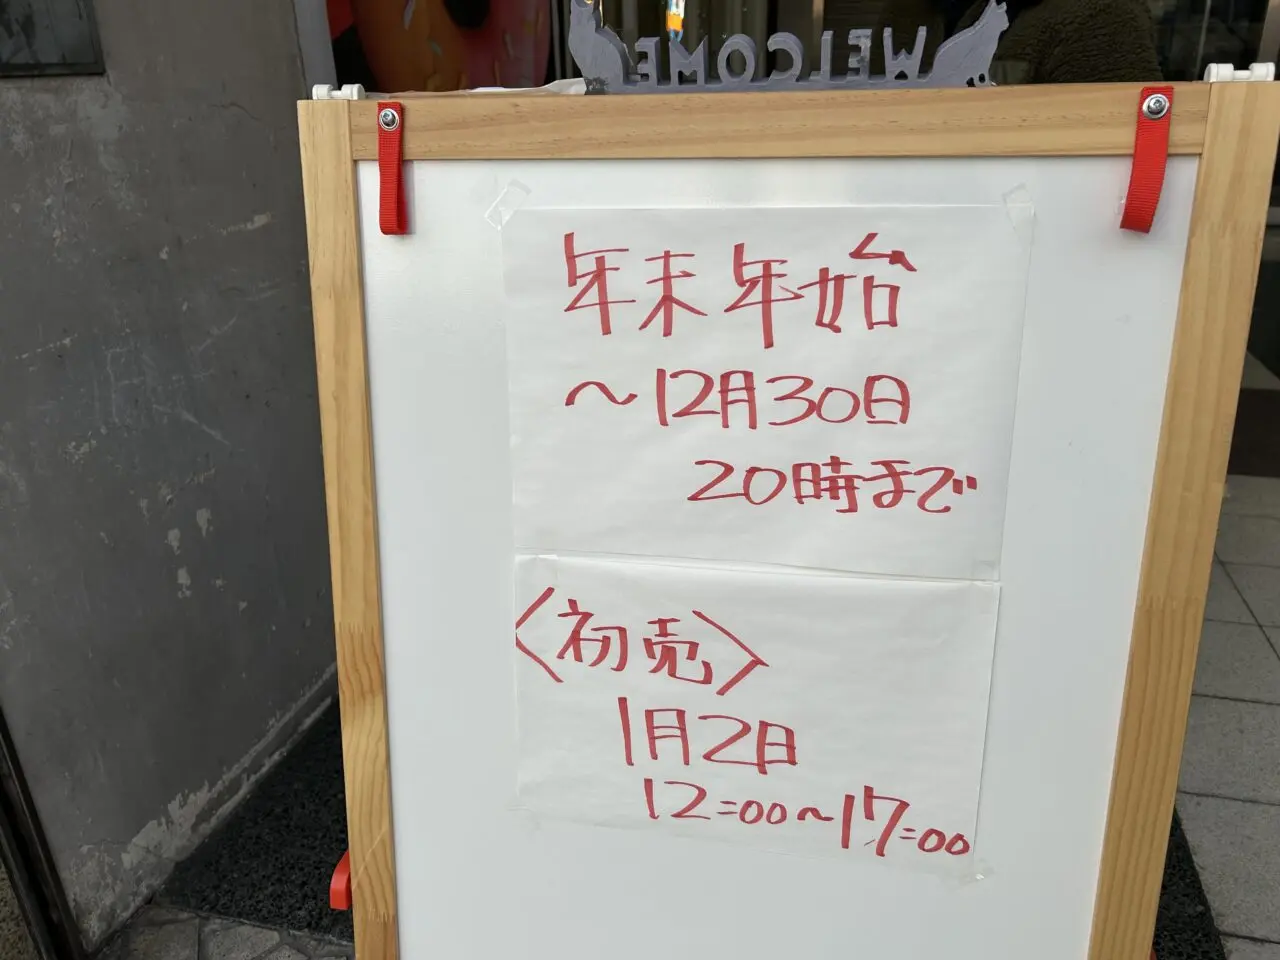 WELCOME
年末年始
～12月30日
20時まで
〈初売〉
1月2日
12:00～17:00